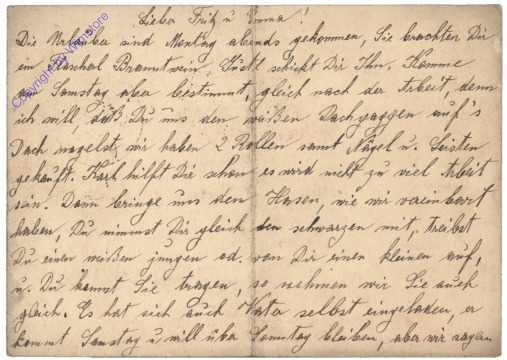 Liebe Fritz u Emma!
Die Urxuba sind Montag abends gekommen, Sie brachten Dir
ein Flascherl Branntwein, Gustl schickt Dir Ihn. Komme
Samstag aber bestimmt, gleich nach der Arbeit, denn
ich will, daß Du uns den weißen Dachgaggen auf's
Dach nagelst, wir haben 2 Rollen samt Nägel u. Leisten
gekauft. Karl hilft Dir schon es wird nicht zu viel Arbeit
sein. Dann bringe uns den Hasen, wie wir vereinbart
haben, Du nimmst Dir gleich den schwarzen mit, treibst
Du einen weißen jungen od. von Dir einen kleinen auf,
u. Du kannst Sie tragen, so nehmen wir Sie auch
gleich. Es hat sich auch Vata selbst eingeladen, er
kommt Samstag u will üba Sonntag bleiben, aber wir sagen
Copyright by vnamstore